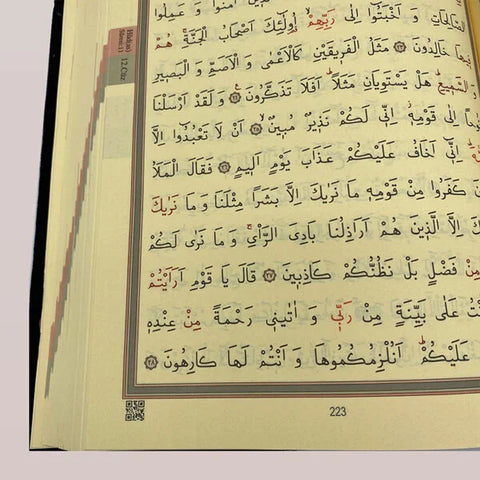 اٰمَنُوا وَ عَمِلُوا
الصَّالِحَاتِ وَ اَخْبَتُٓوا اِلٰى رَبِّهِمْۙ اُولٰٓئِكَ اَصْحَابُ الْجَنَّةِۚ هُمْ
ف۪يهَا خَالِدُونَ ﴿٢٣﴾ مَثَلُ الْفَر۪يقَيْنِ كَالْاَعْمٰى وَ الْاَصَمِّ وَ الْبَص۪يرِ
وَ السَّم۪يعِۜ هَلْ يَسْتَوِيَانِ مَثَلًاۜ اَفَلَا تَذَكَّرُونَ ﴿٢٤﴾ وَ لَقَدْ اَرْسَلْنَا
اِلٰى قَوْمِه۪ٓۘ اِنّ۪ي لَكُمْ نَذ۪يرٌ مُب۪ينٌۙ ﴿٢٥﴾ اَنْ لَا تَعْبُدُٓوا اِلَّا
اِنّ۪ٓي اَخَافُ عَلَيْكُمْ عَذَابَ يَوْمٍ اَل۪يمٍ ﴿٢٦﴾ فَقَالَ الْمَلَاُ
كَفَرُوا مِنْ قَوْمِه۪ مَا نَرٰيكَ اِلَّا بَشَرًا مِثْلَنَا وَ مَا نَرٰيكَ
اِلَّا الَّذ۪ينَ هُمْ اَرَاذِلُنَا بَادِيَ الرَّأْيِۚ وَ مَا نَرٰى لَكُمْ
مِنْ فَضْلٍ بَلْ نَظُنُّكُمْ كَاذِب۪ينَ ﴿٢٧﴾ قَالَ يَا قَوْمِ اَرَاَيْتُمْ
عَلٰى بَيِّنَةٍ مِنْ رَبّ۪ي وَ اٰتٰين۪ي رَحْمَةً مِنْ عِنْدِه۪
عَلَيْكُمْۜ اَنُلْزِمُكُمُوهَا وَ اَنْتُمْ لَهَا كَارِهُونَ ﴿٢٨﴾
Hûd(as)
Sûresi:11
12.Cüz
223